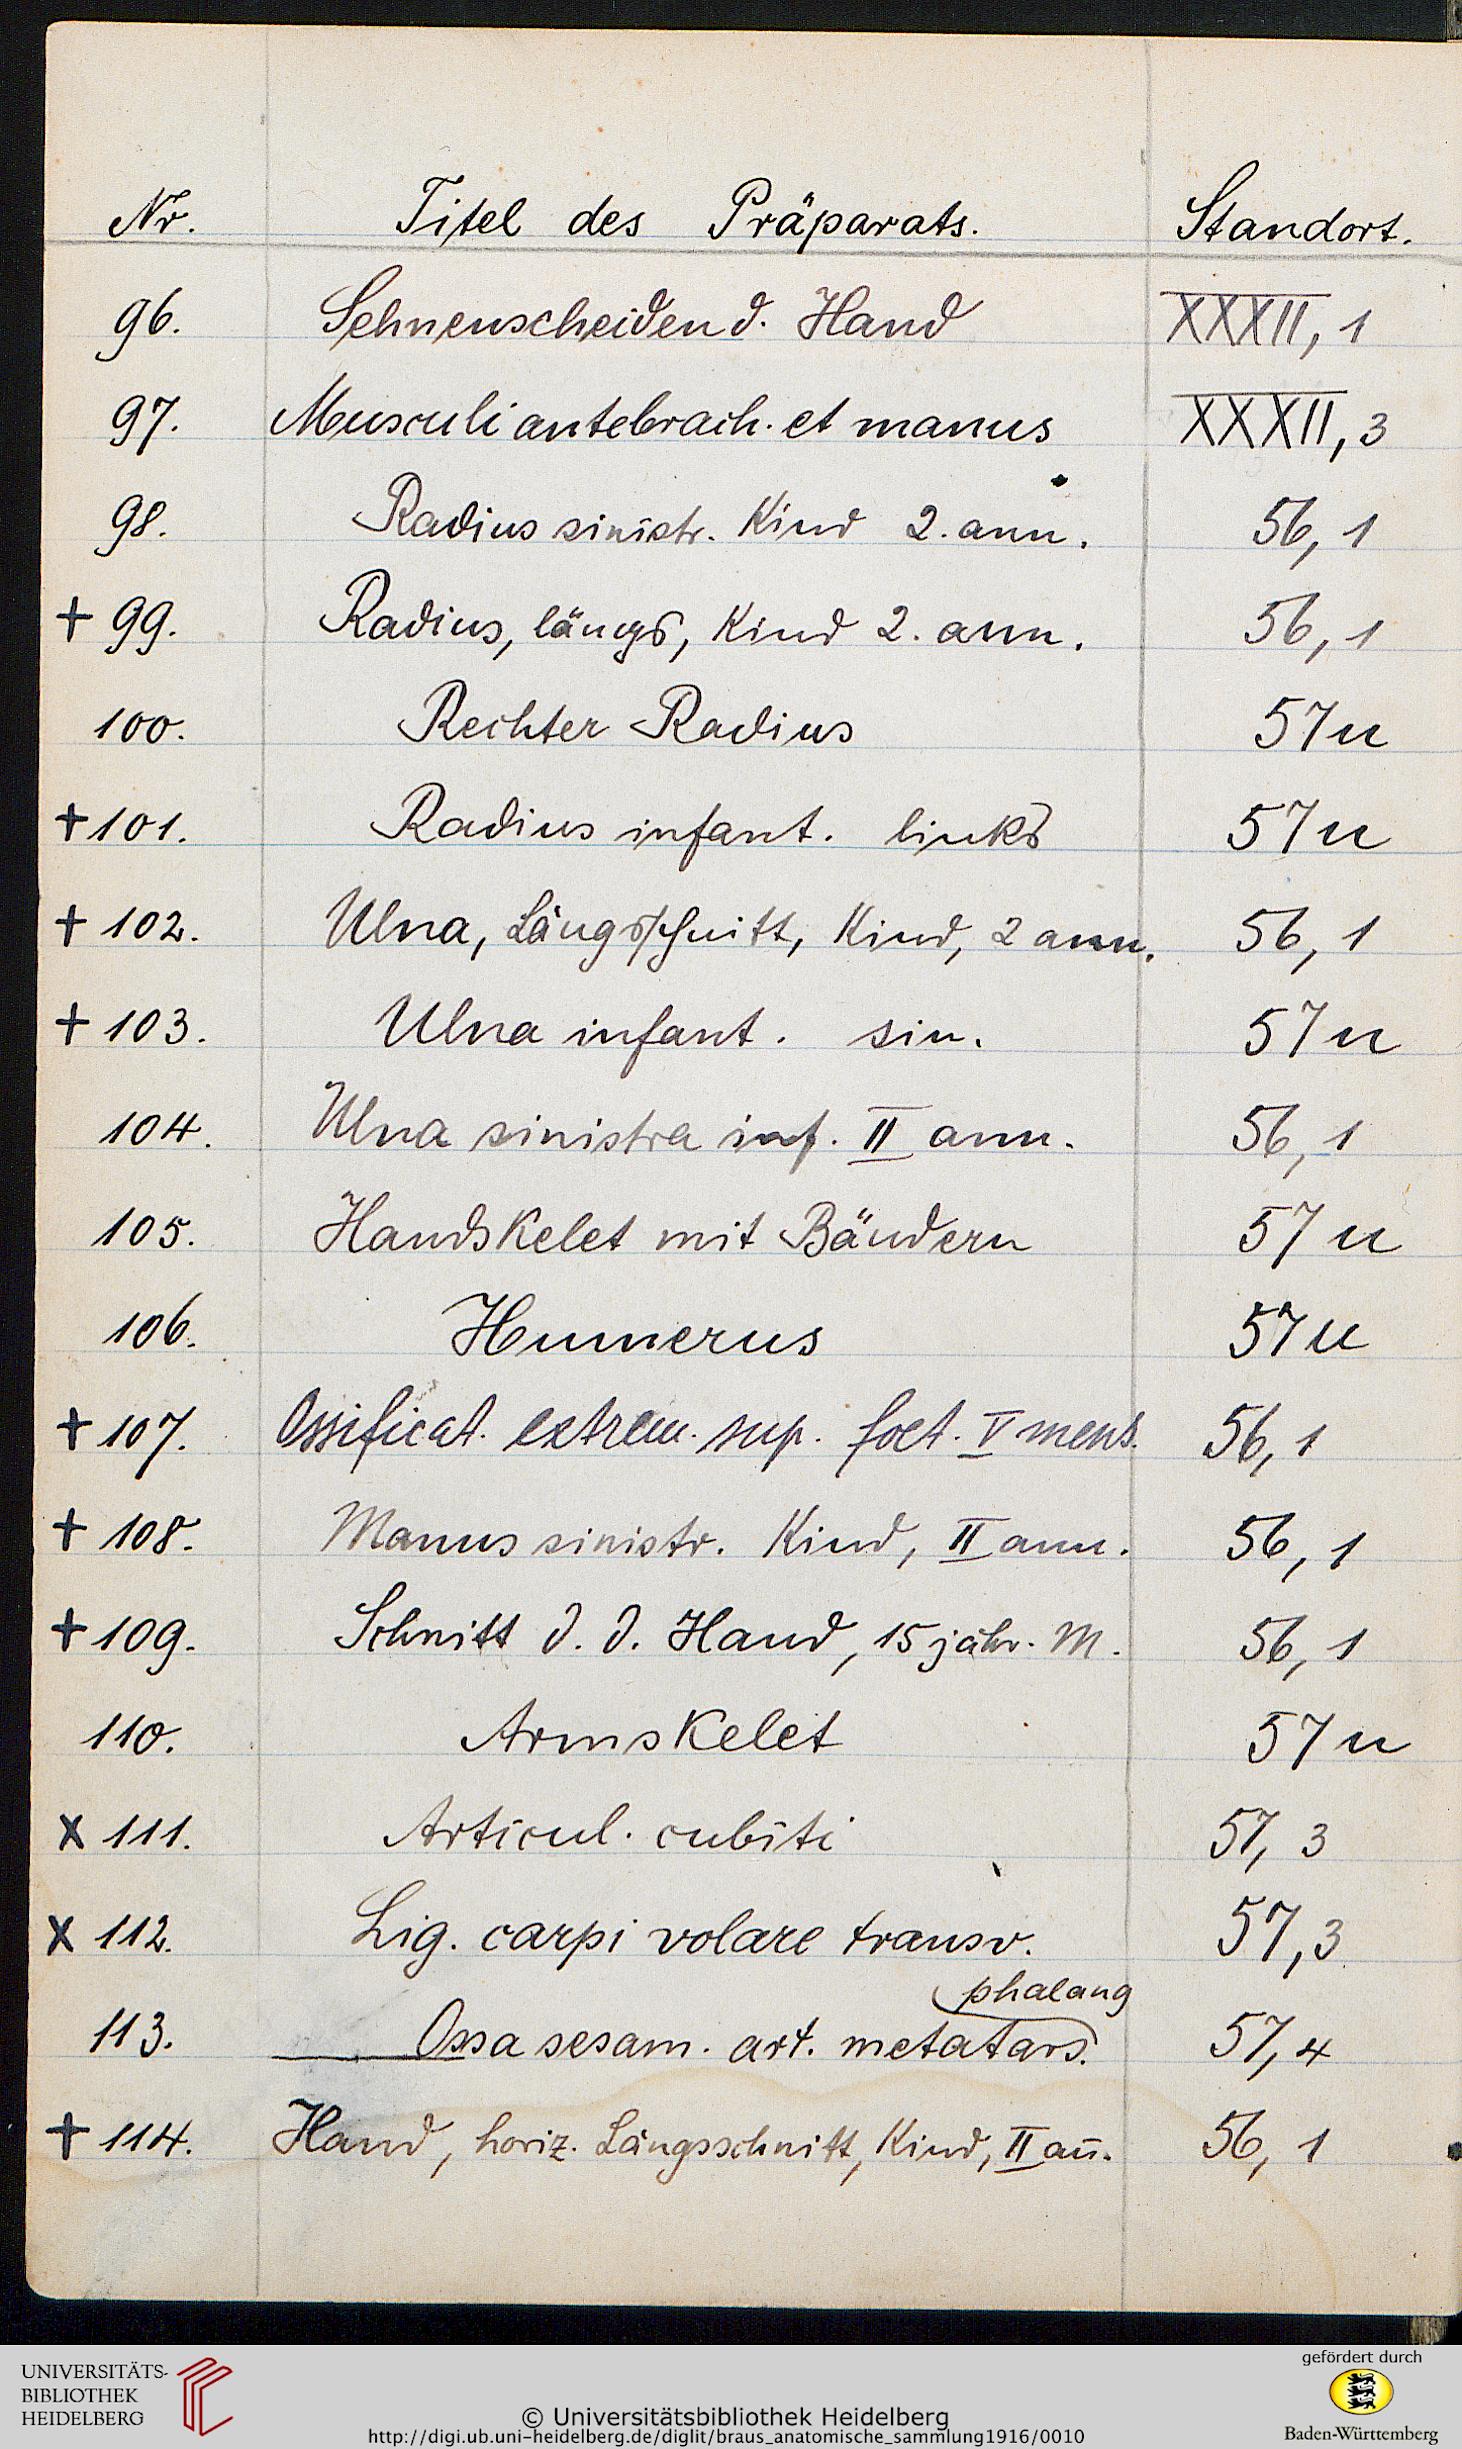 Nr. Titel des Präparats. Standort.
96. Sehnenscheiden d. Hand XXXII, 1
97. Musculi antebrach. et manus XXXII, 3
98. Radius sinistr. Kind 2. ann. 56, 1
+ 99. Radius, längs, Kind 2. ann. 56, 1
100. Rechter Radius 57 u
+ 101. Radius infant. links 57 u
+ 102. Ulna, Längsschnitt, Kind, 2 ann. 56, 1
+ 103. Ulna infant. sin. 57 u
104. Ulna sinistra inf. II ann. 56, 1
105. Handskelet mit Bändern 57 u
106. Humerus 57 u
+ 107. Ossificat. extrem. sup. foet. V mens. 56, 1
+ 108. Manus sinistr. Kind, II ann. 56, 1
+ 109. Schnitt d. d. Hand, 15 jähr. M. 56, 1
110. Armskelet 57 u
x 111. Articul. cubiti 57, 3
x 112. Lig. carpi volare transv. 57, 3
phalang
113. Ossa sesam. art. metatars. 57, 4
+ 114. Hand, horiz. Längsschnitt, Kind, II an̄. 56, 1
UNIVERSITÄTS-
BIBLIOTHEK
HEIDELBERG
© Universitätsbibliothek Heidelberg
http://digi.ub.uni-heidelberg.de/diglit/braus_anatomische_sammlung1916/0010
gefördert durch
Baden-Württemberg